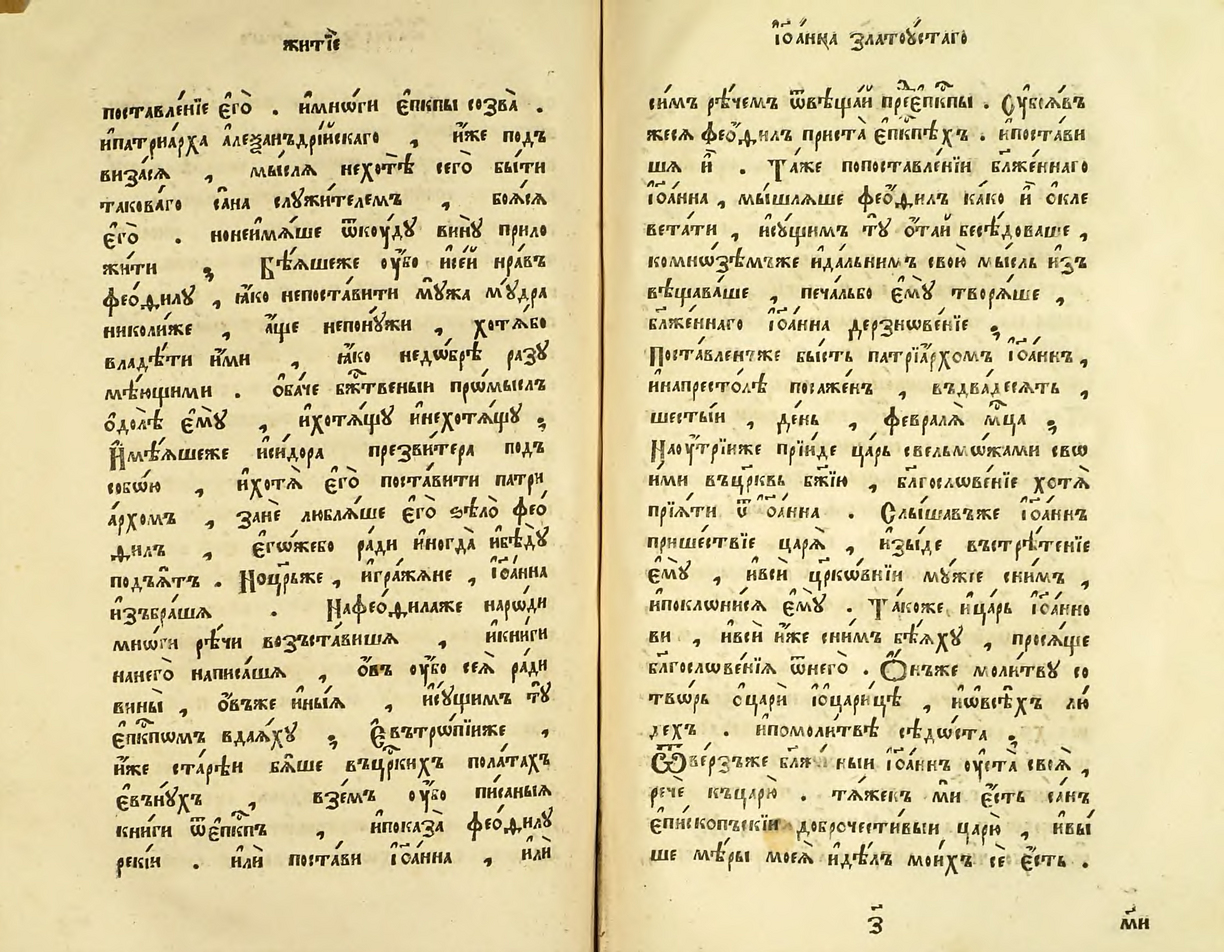 житїе
поставле́нїе є҆го̀ . и҆мнѡ́ги є҆пⷭ҇кпы созва̀ .
и҆патриа́рха але́ѯанъдрі́йскаго , и҆́же подъ
виза́сѧ , мы́слѧ нехотѣ̀ сего̀ бы́ти
такова́го са́на слꙋжи́телемъ , боѧ́сѧ
є҆го̀ . нонеимѧ́ше ѿкоуду винꙋ̀ прило
жи́ти ; Бѣ́ѧшеже оу҆́бо и҆сей нра́въ
феѻ́дилꙋ , ꙗ҆́ко непоста́вити мꙋ́жа мꙋ́дра
николи́же , а҆́ще непонꙋ́жи , хотѧ́бо
владѣ́ти и҆́ми , ꙗ҆́ко недѡ́брѣ разꙋ
мѣ́ющими . ѻ҆ба́че бж҃твеныи прѡ́мыслъ
ѻ҆долѣ̀ є҆мꙋ̀ , и҆хотѧ́щꙋ и҆нехотѧ́щꙋ ;
И҆мѣ́ѧшеже и҆си́дора презви́тера подъ
собо́ю , и҆хотѧ̀ є҆го̀ поста́вити патри
а́рхомъ , занѐ люблѧ́ше є҆го̀ ѕѣло̀ фео
дилъ , є҆гѡ́жебо ра́ди и҆ногда̀ и҆бѣдꙋ̀
подъѧ́тъ . Ноцр҃ьже , и҆гра́жѧне , і҆ѻа́нна
и҆збра́шѧ . Нафеѻ́дилаже наро́ди
мнѡ́ги рѣ́чи возъста́вишѧ , и҆кни́ги
нанего̀ написа́шѧ , ѻ҆́въ оу҆́бо сеѧ̀ ра́ди
вины̀ , ѻ҆́въже и҆ны́ѧ , и҆сꙋ́щимъ тꙋ̀
є҆пⷭ҇кпѡмъ вдаѧ́хꙋ ; Є҆вътро́пїиже ,
и҆́же старѣ́и бѧ́ше въцр҃кихъ пола́тахъ
є҆вънꙋ́хъ , взе́мъ оу҆́бо пи́саныѧ
кни́ги ѿє҆пⷭ҇кпъ , и҆показа̀ феѻ́дилꙋ
реки́и . и҆лѝ поста́ви і҆ѻа́нна , и҆лѝ
і҆ѻа́нна златоꙋ́стаго
си́мъ рѣ́чемъ ѿвѣща́й пред̾є҆пⷭ҇кпы . Оу҆боѧ́въ
жесѧ феѻ́дилъ приста̀ є҆пⷭ҇кпѣхъ . и҆поста́ви
шѧ и҆̀ . Та́же попоставле́нїи бл҃же́ннаго
і҆ѻа́нна , мы́шлѧше феѻ́дилъ ка́ко и҆̀ ѻ҆кле
вета́ти , и҆сꙋ́щимъ тꙋ̀ ѻ҆та́й бесѣ́доваше ,
комнѡ́зѣмъже и҆да́льнимъ свою̀ мы́сль и҆зъ
вѣщава́ше , печа́льбо є҆мꙋ̀ творѧ́ше ,
бл҃же́ннаго і҆ѻа́нна дерзнове́нїе ;
Поста́вленъже бы́сть патрїа́рхомъ і҆ѻа́ннъ ,
и҆напресто́лѣ поса́женъ , въдва́десѧть ,
шесты́и , де́нь , февралѧ̀ мⷭ҇ца ;
Наоу҆́трїиже прїи́де ца́рь свельмо́жами сво
и́ми въцр҃квь бж҃їю , бл҃гослове́нїе хотѧ̀
прїѧ́ти ѿ і҆ѻа́нна . Слы́шавъже і҆ѻа́ннъ
прише́ствїе царѧ̀ , и҆зы́де въстрѣ́тенїе
є҆мꙋ̀ , и҆всѝ цр҃ко́внїи мꙋ́жїе сни́мъ ,
и҆покло́нисѧ є҆мꙋ̀ . Та́коже и҆ца́рь і҆ѻа́нно
ви , и҆всѝ и҆́же сни́мъ бѣ́ѧхꙋ , просѧ́ще
бл҃гослове́нїѧ ѿнего̀ . Ѻ҆́нъже моли́твꙋ со
тво́рь ѻ҆царѝ і҆ѻцари́цѣ , и҆ѡвсѣ́хъ лю́
дехъ . и҆помоли́твѣ сѣдо́ста ;
Ѿве́рзъже бл҃же́ныи і҆ѻа́ннъ оу҆ста̀ своѧ̀ ,
речѐ къцарю̀ . тѧ́жекъ мѝ є҆́сть са́нъ
є҆пи́скопъскїи доброчести́выи царю̀ , и҆вы́
ше мѣ́ры моеѧ̀ и҆дѣ́лъ мои́хъ сѐ є҆́сть .
з҃ м҃и